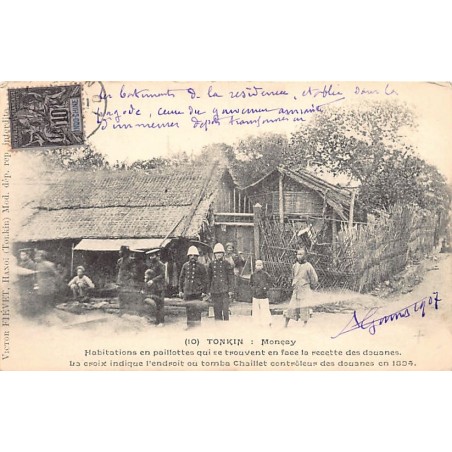 Les batiments de la résidence, établie dans la
pagode, ceux du gouvernement
d'immenses dépots
1907
(10) TONKIN : Monçay
Habitations en paillottes qui se trouvent en face la recette des douanes.
La croix indique l'endroit ou tomba Chaillet contrôleur des douanes en 1894.
Victor FIÉVET, Hanoï (Tonkin) Mod. dép. rep. interdite
10